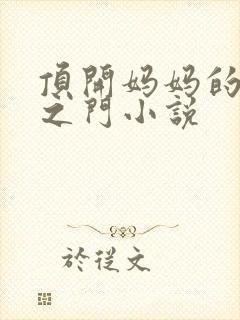 頂開媽媽的
之門小説
於從文